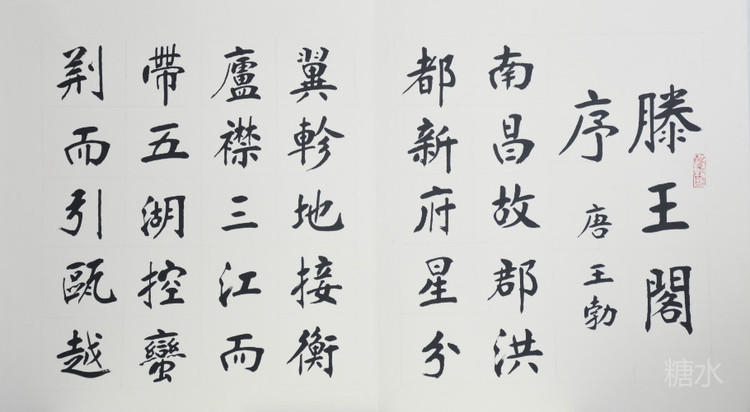 滕王閣
序
唐王勃
南昌故郡洪
都新府星分
翼軫地接衡
廬襟三江而
帶五湖控蠻
荆而引甌越
糖水